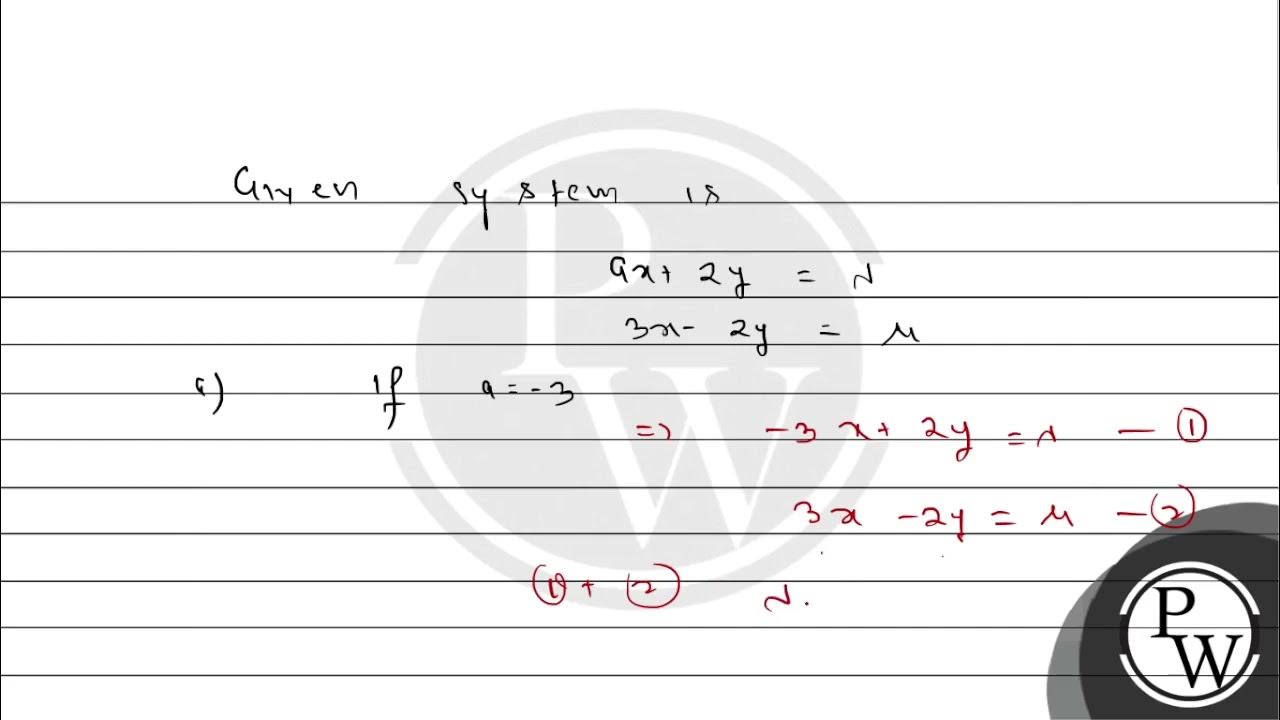 Given system is
ax+ 2y = λ
3x- 2y = μ
a) If a=-3
=> -3x+ 2y =λ — ①
3x -2y = μ — ②
① + ② λ.
PW
PW